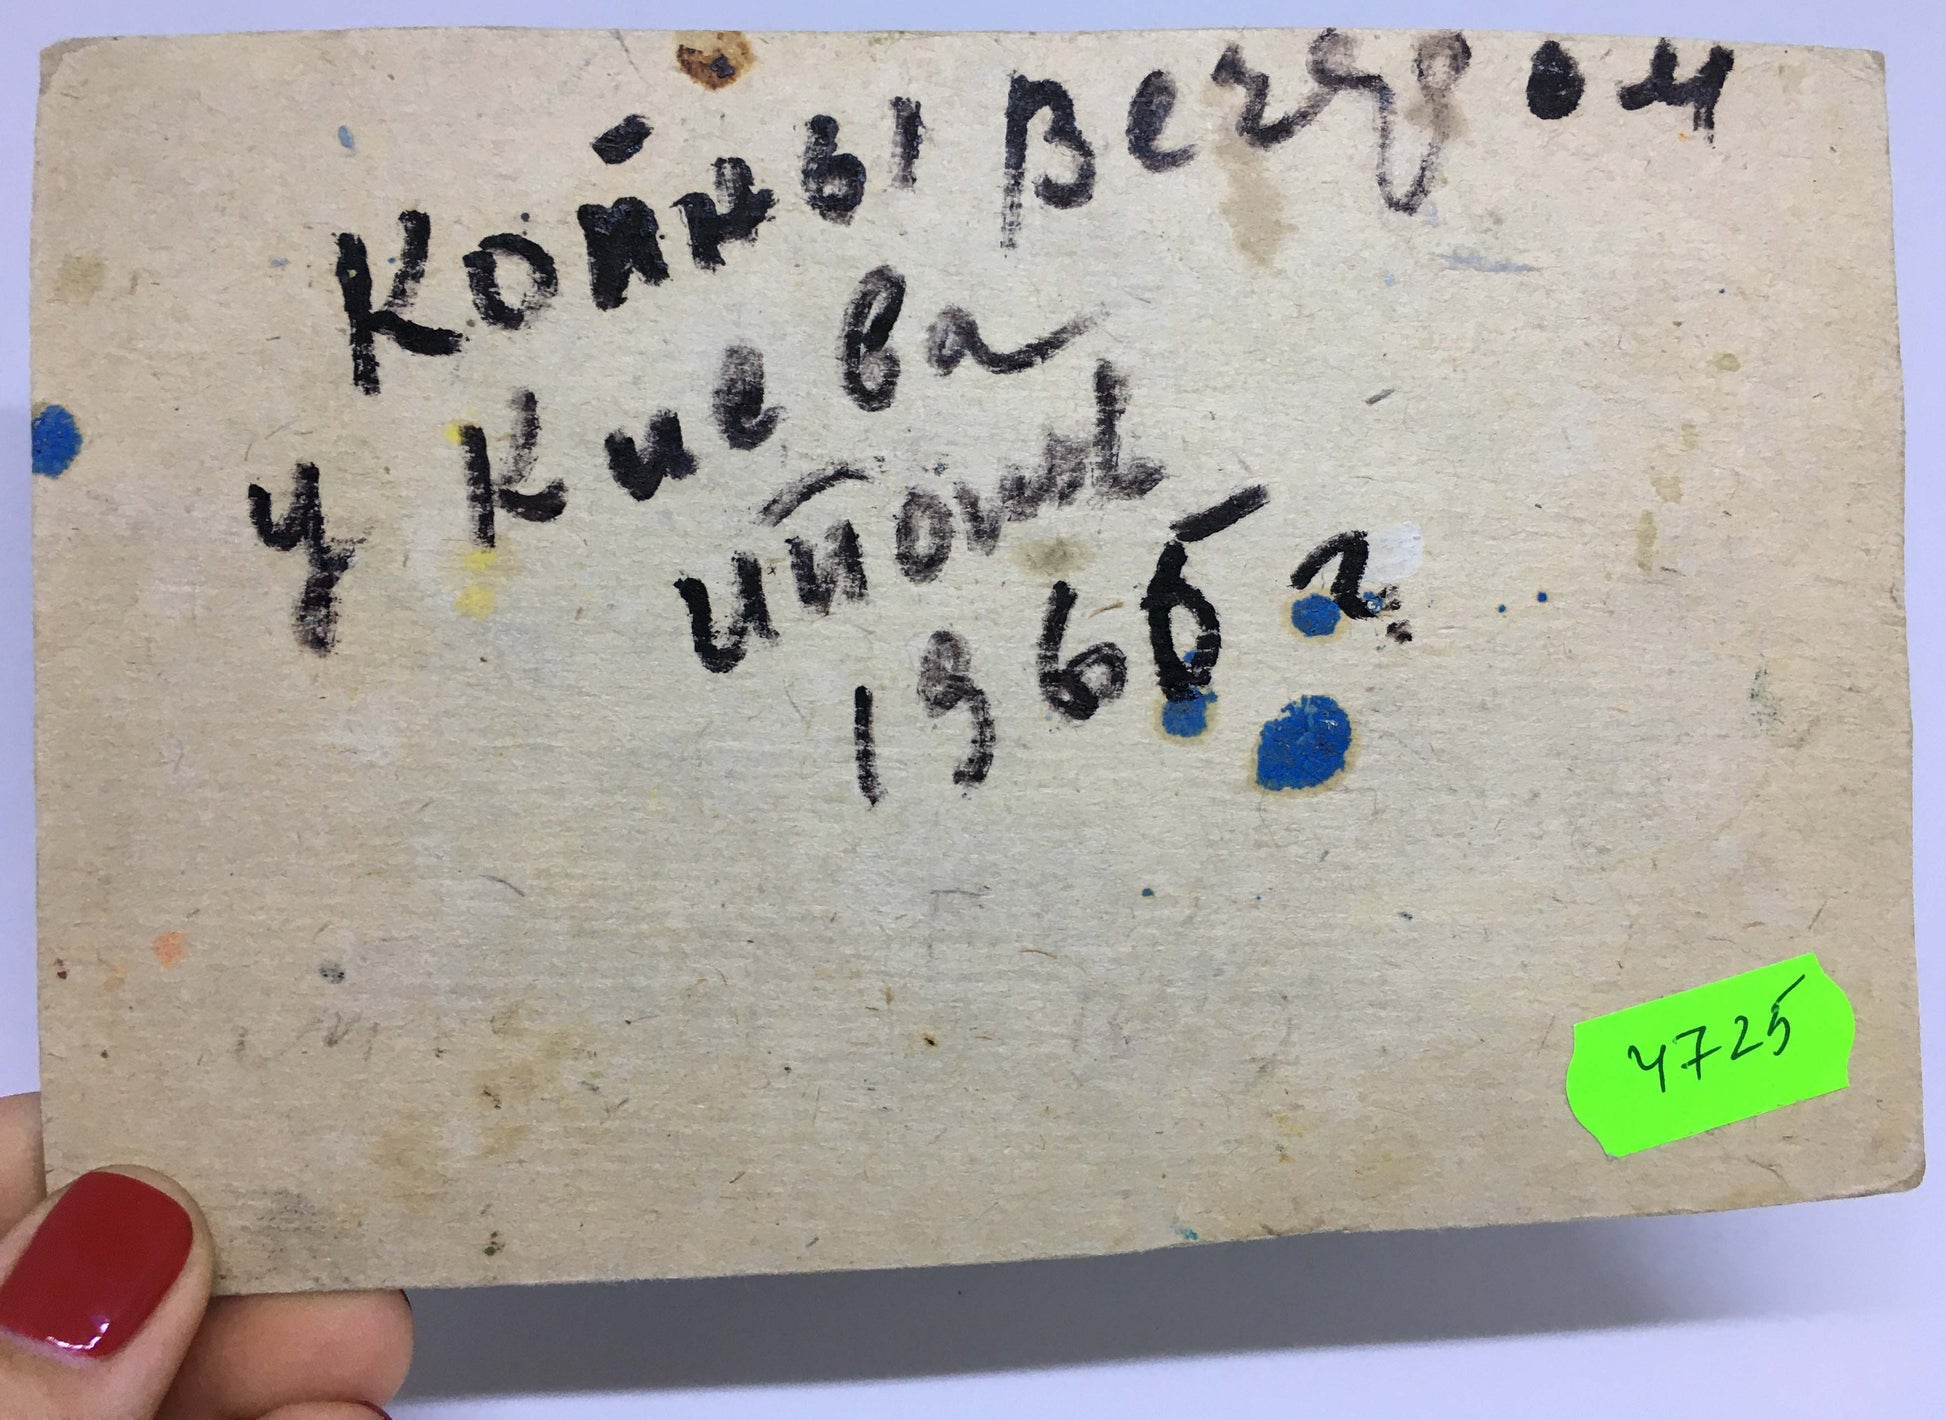 Копны Вечером
у Киева
1965 г.
4725